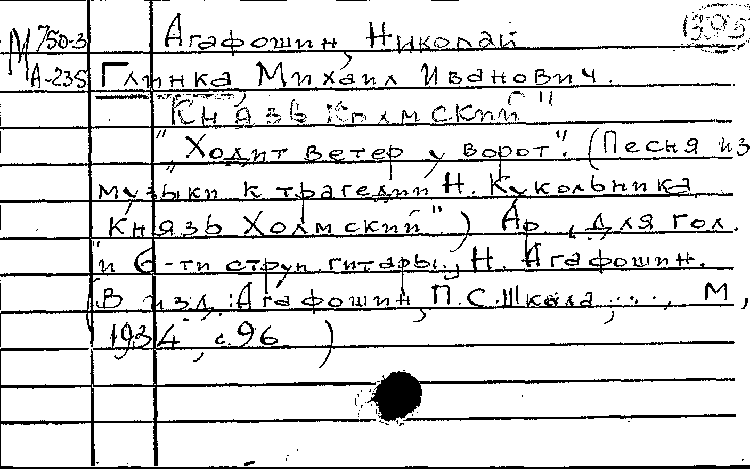 М 750-3 Агафошин, Николай 1395
А-235 Глинка, Михаил Иванович.
Князь Холмский"
"Ходит ветер у ворот". (Песня из
музыки к трагедии Н. Кукольника
Князь Холмский".) Ар. для гол.
и 6-ти струн. гитары, Н. Агафошин.
(В изд.: Агафошин, П.С. Школа..., М,
1934, с. 96.)